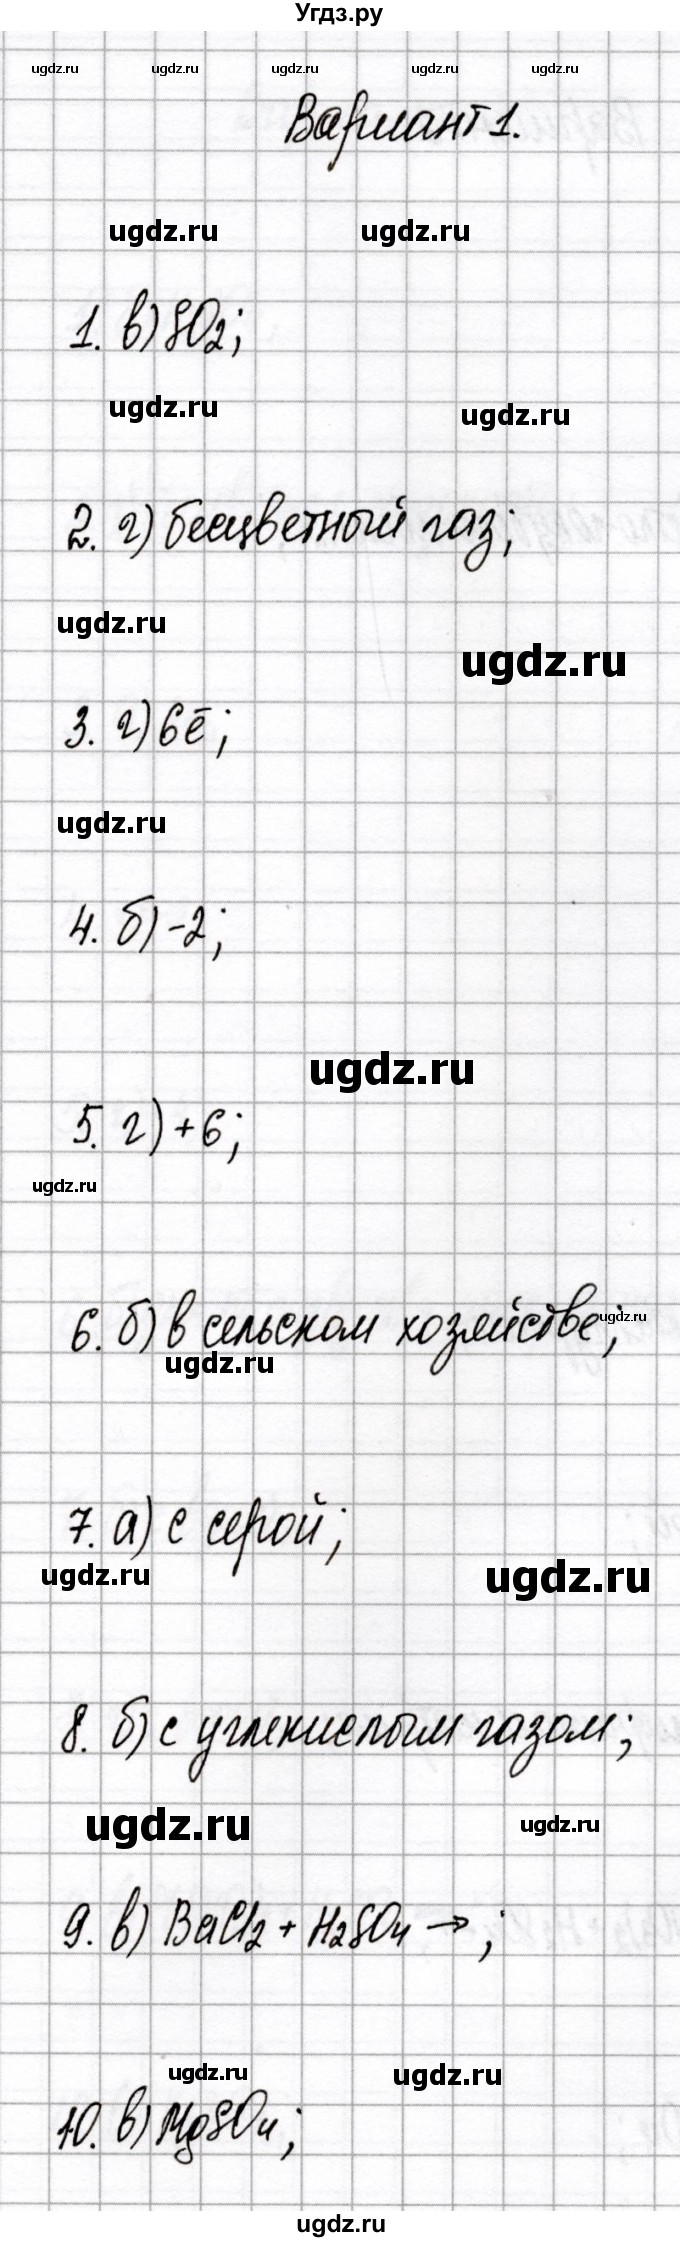 Угдз.ру
ugdz.ru ugdz.ru ugdz.ru ugdz.ru ugdz.ru
Вариант 1.
ugdz.ru ugdz.ru
1. в) SO2;
ugdz.ru ugdz.ru
2. г) бесцветный газ;
ugdz.ru
ugdz.ru
3. г) 6ē;
ugdz.ru
4. б) -2;
ugdz.ru
5. г) +6;
ugdz.ru
6. б) в сельском хозяйстве;
ugdz.ru
ugdz.ru
7. а) с серой;
ugdz.ru ugdz.ru
8. б) с углекислым газом;
ugdz.ru ugdz.ru
9. в) BaCl2 + H2SO4 → ;
ugdz.ru ugdz.ru
10. в) MgSO4;
ugdz.ru